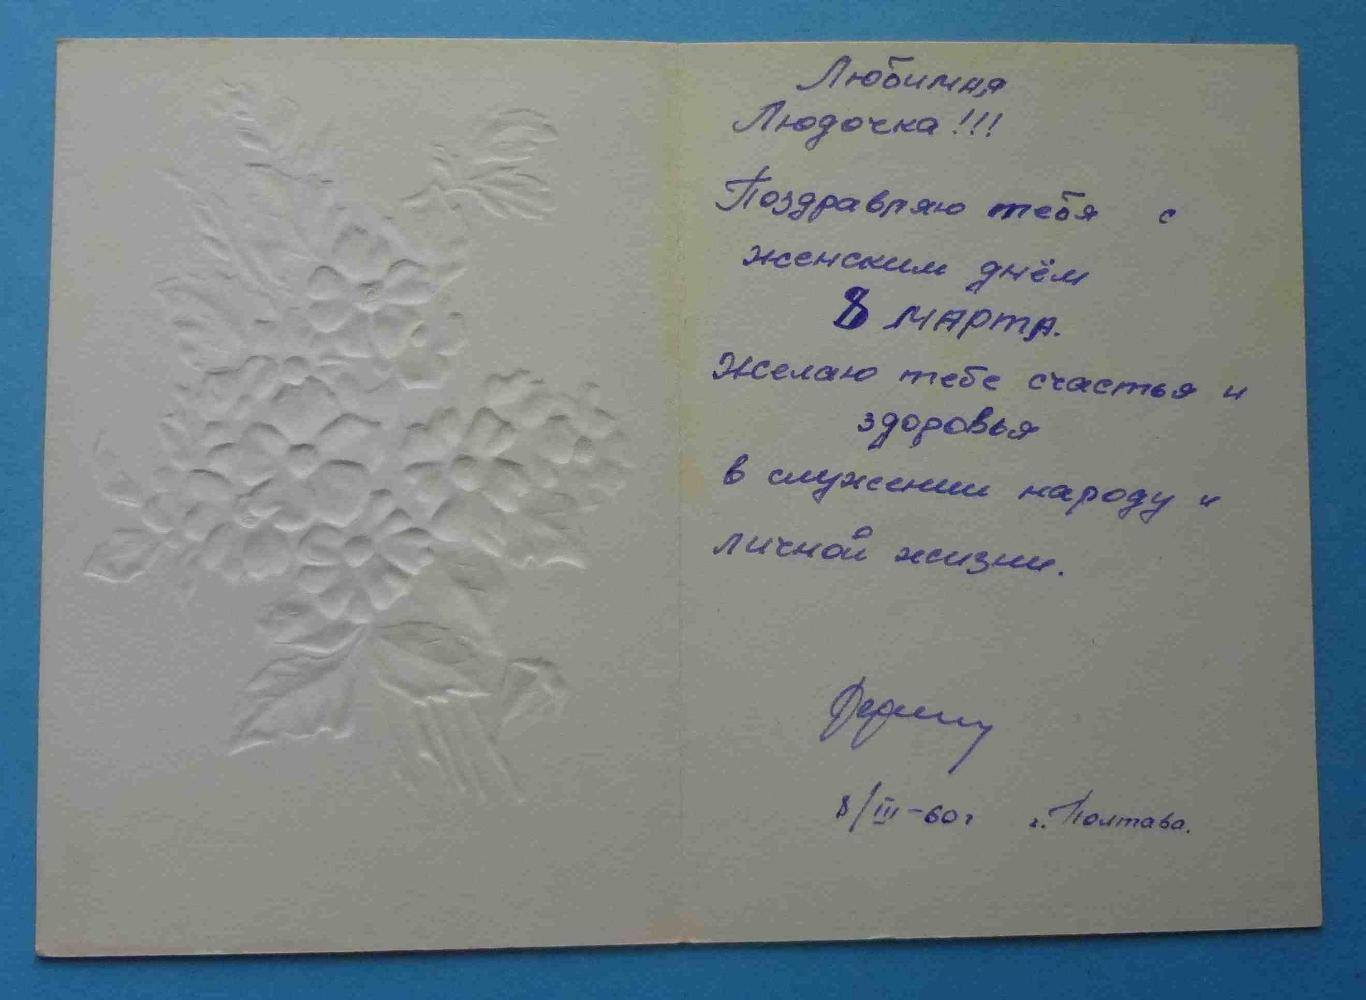 Любимая
Людочка!!!
Поздравляю тебя с
женским днём
8 МАРТА.
Желаю тебе счастья и
здоровья
в служении народу и
личной жизни.
8/III-60г г. Полтава.